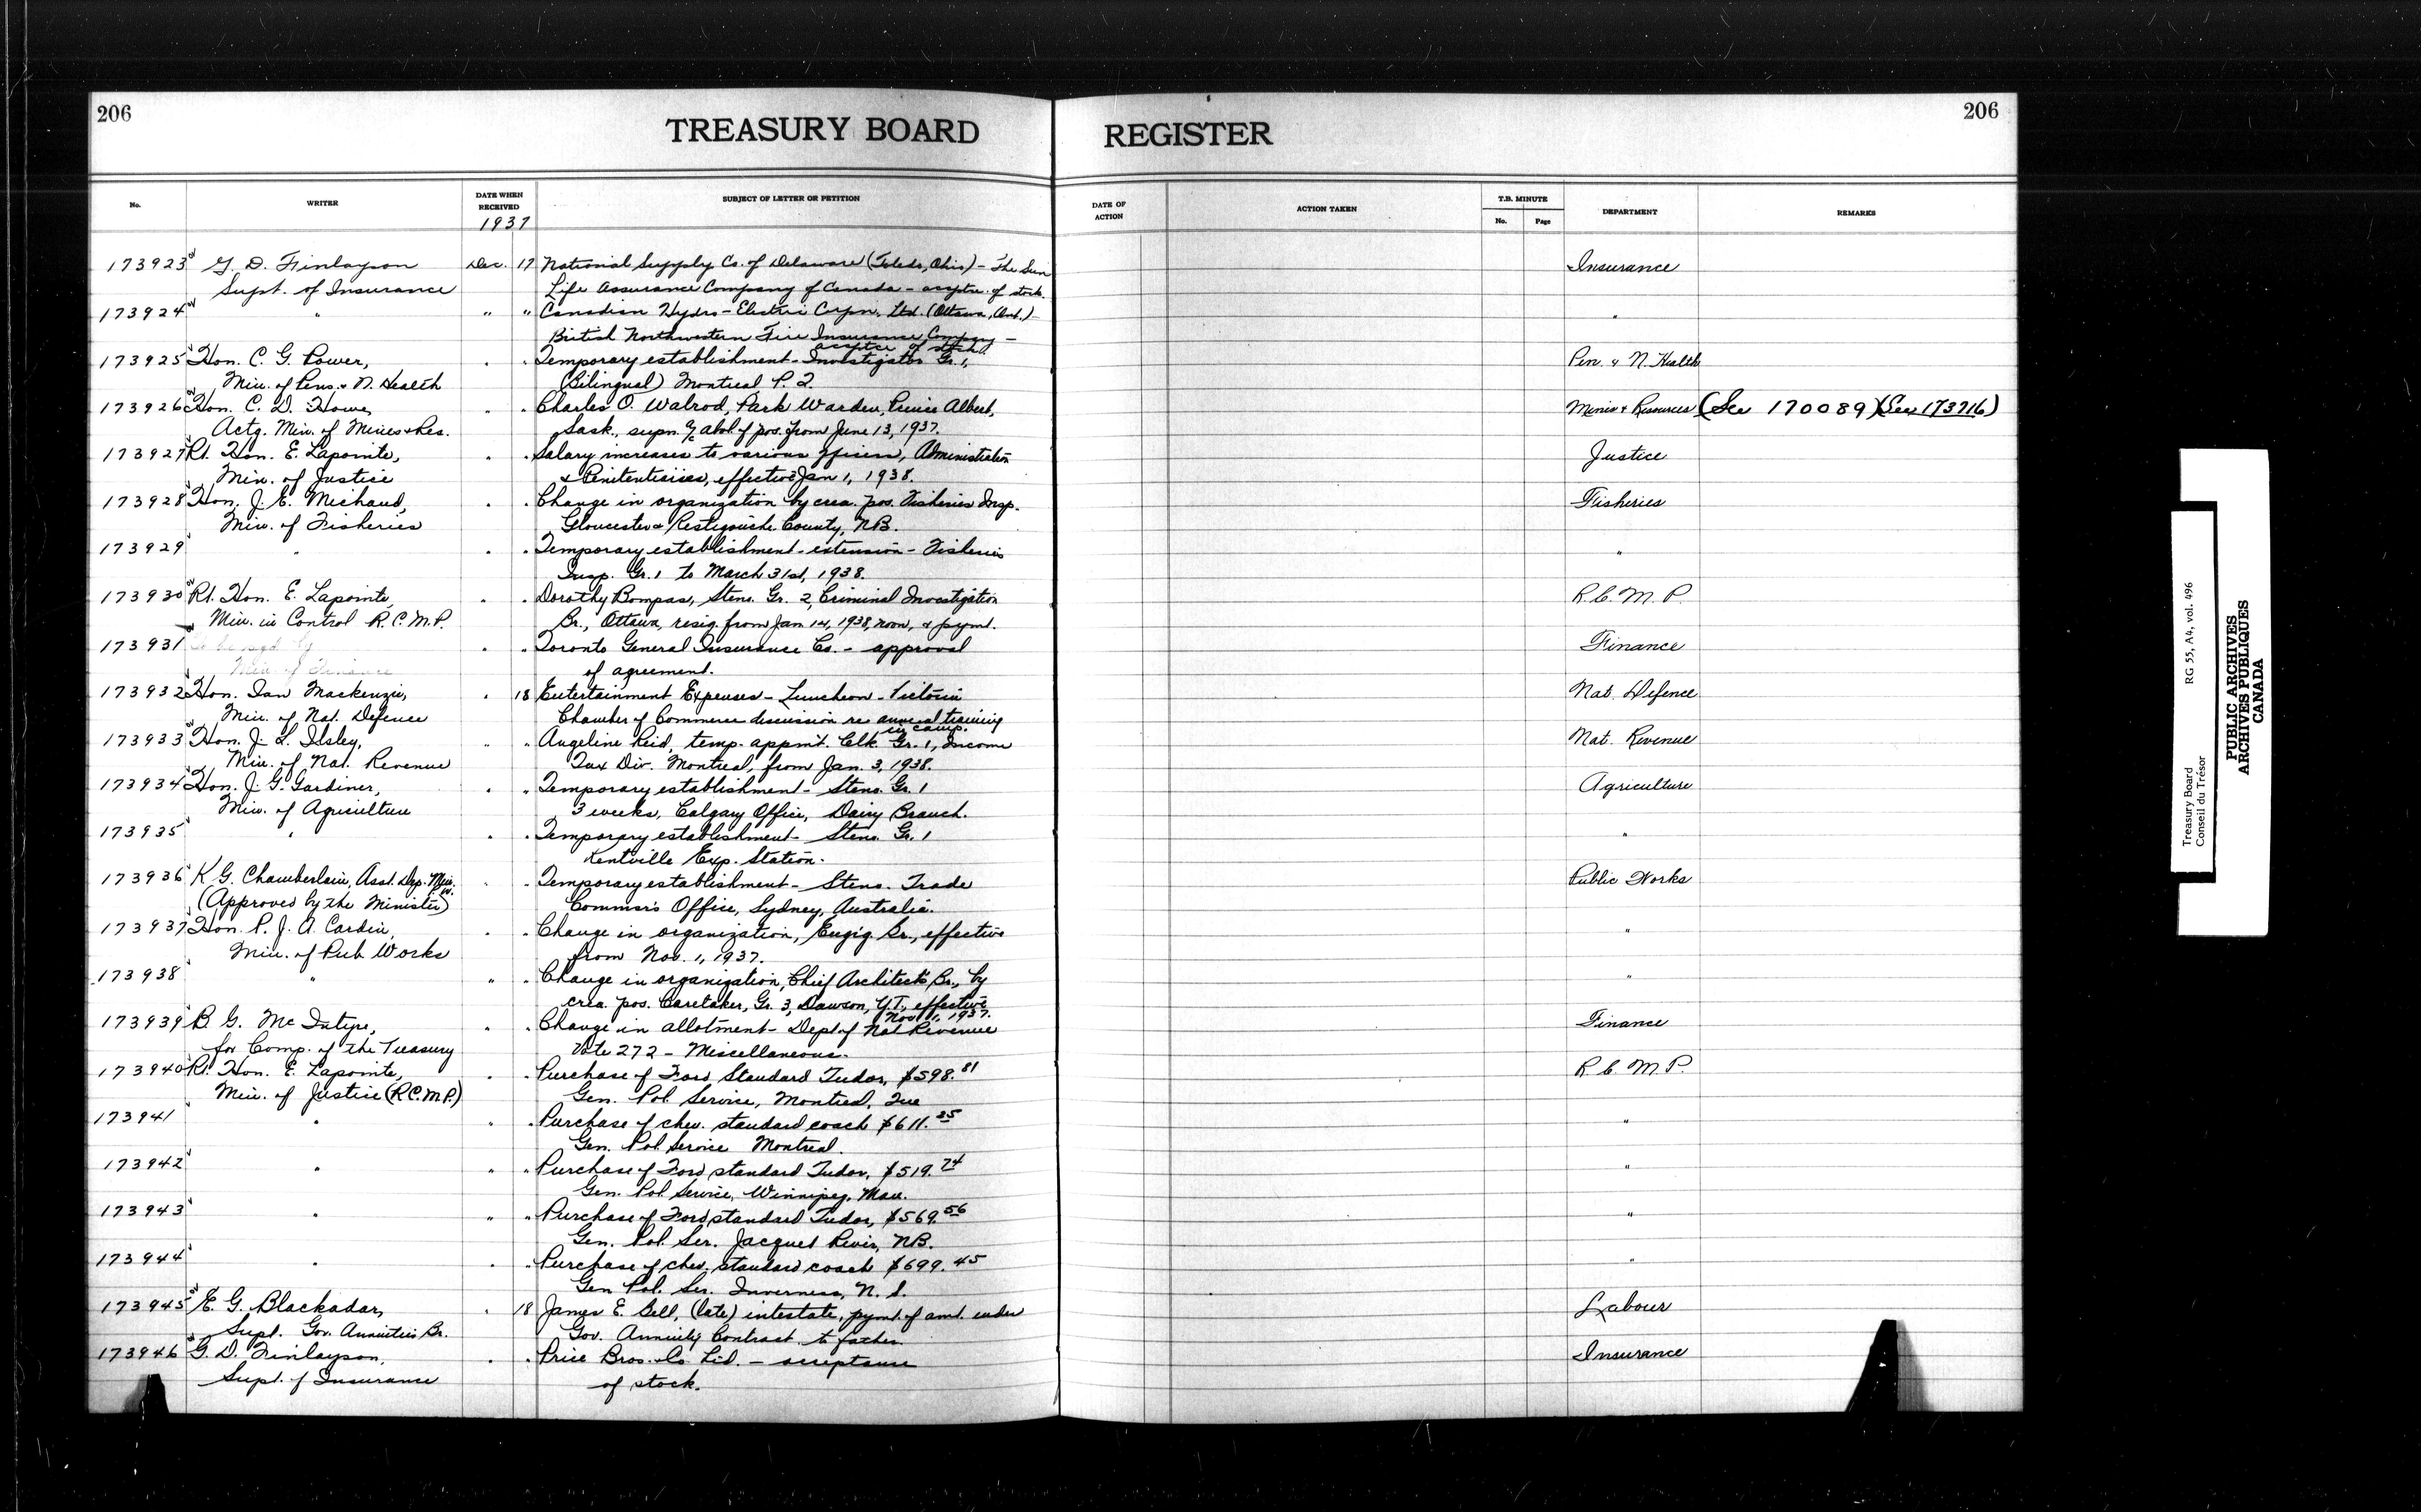 206
TREASURY BOARD
REGISTER
206
No.
WRITER
DATE WHEN RECEIVED
1937
SUBJECT OF LETTER OR PETITION
DATE OF ACTION
ACTION TAKEN
T.B. MINUTE
No.
Page
DEPARTMENT
REMARKS
173923 G. D. Finlayson Dec. 17 National Supply Co. of Delaware (Toledo, Ohio) - The Sun Insurance
Supt. of Insurance Life Assurance Company of Canada - acceptce. of stock.
173924 " " " Canadian Hydro-Electric Corpn. Ltd. (Ottawa, Ont.) - "
British Northwestern Fire Insurance Company -
acceptce of stock.
173925 Hon. C. G. Power, " " Temporary establishment - Investigator Gr. 1, Pen. & N. Health
Min. of Pens. & N. Health (Bilingual) Montreal P. Q.
173926 Hon. C. D. Howe, " " Charles O. Walrod, Park Warden, Prince Albert, Mines & Resources (See 170089) (See 173716)
Actg. Min. of Mines & Res. Sask., supn. a/c abol. of pos. from June 13, 1937.
173927 Rt. Hon. E. Lapointe, " " Salary increases to various officers, Administration Justice
Min. of Justice & Penitentiaries, effective Jan 1, 1938.
173928 Hon. J. E. Michaud, " " Change in organization by crea. pos. Fisheries Insp. Fisheries
Min. of Fisheries Gloucester & Restigouche County, N.B.
173929 " " " Temporary establishment - extension - Fisheries "
Insp. Gr. 1 to March 31st, 1938.
173930 Rt. Hon. E. Lapointe, " " Dorothy Bompas, Steno. Gr. 2, Criminal Investigation R. C. M. P.
Min. in Control R.C.M.P. Br., Ottawa, resig. from Jan 14, 1938, noon, & pymt.
173931 To be sgd by " " Toronto General Insurance Co. - approval Finance
Min. of Finance of agreement.
173932 Hon. Ian Mackenzie, " 18 Entertainment Expenses - Luncheon - Victoria Nat. Defence
Min. of Nat. Defence Chamber of Commerce discussion re annual training
in camp.
173933 Hon. J. L. Ilsley, " " Angeline Reid, temp. appmt. Clk. Gr. 1, Income Nat. Revenue
Min. of Nat. Revenue Tax Div. Montreal, from Jan. 3, 1938.
173934 Hon. J. G. Gardiner, " " Temporary establishment - Steno. Gr. 1 Agriculture
Min. of Agriculture 3 weeks, Calgary Office, Dairy Branch.
173935 " " " Temporary establishment - Steno. Gr. 1 "
Kentville Exp. Station.
173936 K. G. Chamberlain, Asst. Dep. Min. " " Temporary establishment - Steno. Trade Public Works
(Approved by the Minister) Commsr's Office, Sydney, Australia.
173937 Hon. P. J. A. Cardin, " " Change in organization, Engig. Br., effective "
Min. of Pub Works from Nov. 1, 1937.
173938 " " " Change in organization, Chief Architect's Br., by "
crea. pos. Caretaker, Gr. 3, Dawson, Y.T., effective
Nov 1, 1937.
173939 B. G. McIntyre, " " Change in allotment - Dept of Nat Revenue Finance
for Comp. of the Treasury Vote 272 - Miscellaneous.
173940 Rt. Hon. E. Lapointe, " " Purchase of Ford Standard Tudor, $598.81 R. C. M. P.
Min. of Justice (R.C.M.P.) Gen. Pol. Service, Montreal, Que
173941 " " " Purchase of chev. standard coach $611.35 "
Gen. Pol. Service Montreal.
173942 " " " Purchase of Ford standard Tudor, $519.74 "
Gen. Pol. Service, Winnipeg, Man.
173943 " " " Purchase of Ford standard Tudor, $569.56 "
Gen. Pol. Ser. Jacquet River, N.B.
173944 " " " Purchase of chev. standard coach $699.45 "
Gen Pol. Ser. Inverness, N. S.
173945 E. G. Blackadar, " 18 James E. Gell, (late) intestate, pymt. of amt. under Labour
Supt. Gov. Annuities Br. Gov. Annuity Contract to father.
173946 G. D. Finlayson, " " Price Bros. & Co. Ltd. - acceptance Insurance
Supt. of Insurance of stock.
Treasury Board RG 55, A4, vol. 496
Conseil du Trésor
PUBLIC ARCHIVES
ARCHIVES PUBLIQUES
CANADA